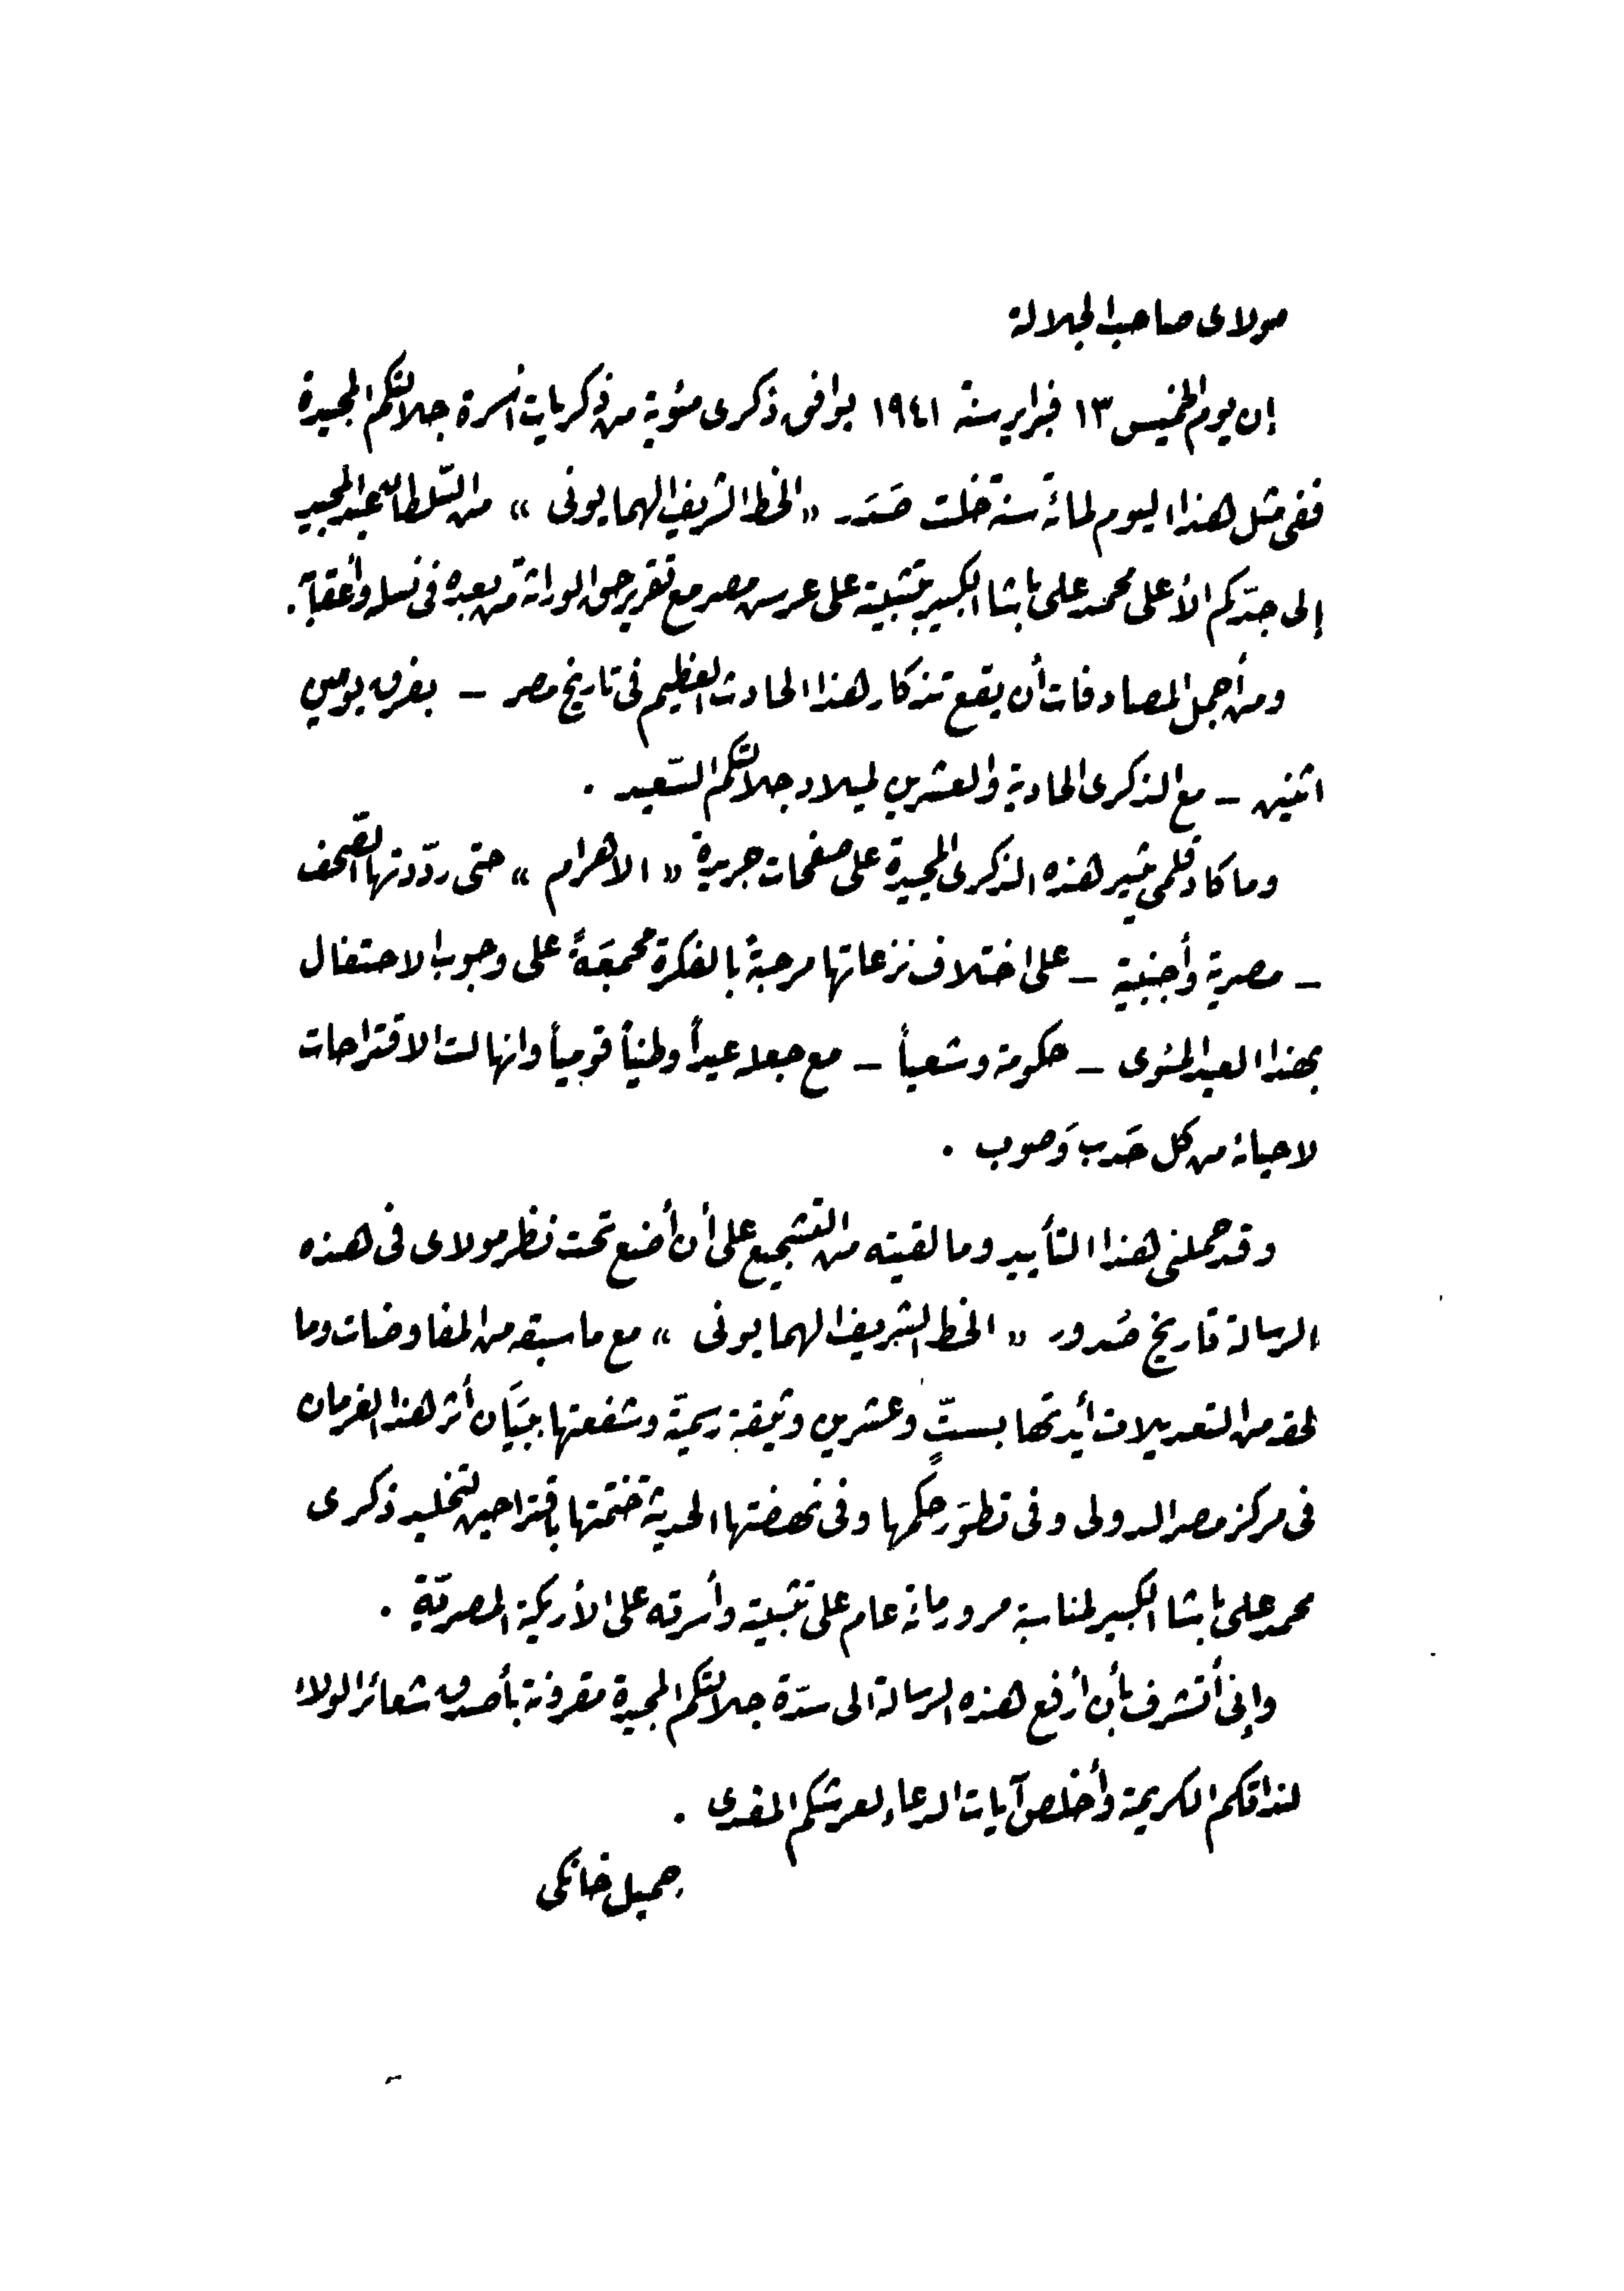 مولاى صاحب الجلالة
إن يوم الخميس ١٣ فبراير سنة ١٩٤١ يوافق ذكرى مئوية من ذكريات أسرة جلالتكم المجيدة
ففى مثل هذا اليوم لمائة سنة خلت صَدَر « الخط الشريف الهمايونى » من السّلطان عبد المجيد
إلى جدّكم الأعلى محمد على باشا الكبير بتثبيته على عرس مصر مع تقرير حق الوراثة من بعده فى نسله وأعقابه .
ومن أجمل المصادفات أن يقع تذكار هذا الحادث العظيم فى تاريخ مصر – بفرق يومين
اثنين – مع الذكرى الحادية والعشرين لميلاد جلالتكم السّعيد .
وما كاد قلمى يثير هذه الذكرى المجيدة على صفحات جريدة « الاهرام » حتى ردّدتها الصّحف
– مصرية وأجنبية – على اختلاف نزعاتها مرحبةً بالفكرة مجمعَةً على وجوب الاحتفال
بهذا العيد المئوى – حكومة وشعباً – مع جعله عيداً وطنياً قومياً وانهالت الاقتراحات
لاحيائه من كل حَدب وَصوب .
وقد حملنى هذا التأييد وما لقيته من التشجيع على أن أضع تحت نظر مولاى فى هذه
الرسالة تاريخ صُدور « الخط الشريف الهمايونى » مع ما سبقه من المفاوضات وما
لحقه من التعديلات أيدتها بستٍّ وعشرين وثيقة رسميّة وشفعتها ببيَان أثر هذا الفرمان
فى مركز مصر الدولى وفى تطوّر حكمها وفى نهضتها الحديثة ختمتها باقتراحين لتخليد ذكرى
محمد على باشا الكبير لمناسبة مرور مائة عام على تثبيته وأسرته على الأريكة المصريّة .
وإنى أتشرف بأن أرفع هذه الرسالة الى سدّة جلالتكم المجيدة مقرونة بأصدق شعائر الولاء
لذاتكم الكريمة وأخلص آيات الدعاء لعرشكم المفدى .
جميل خانكى